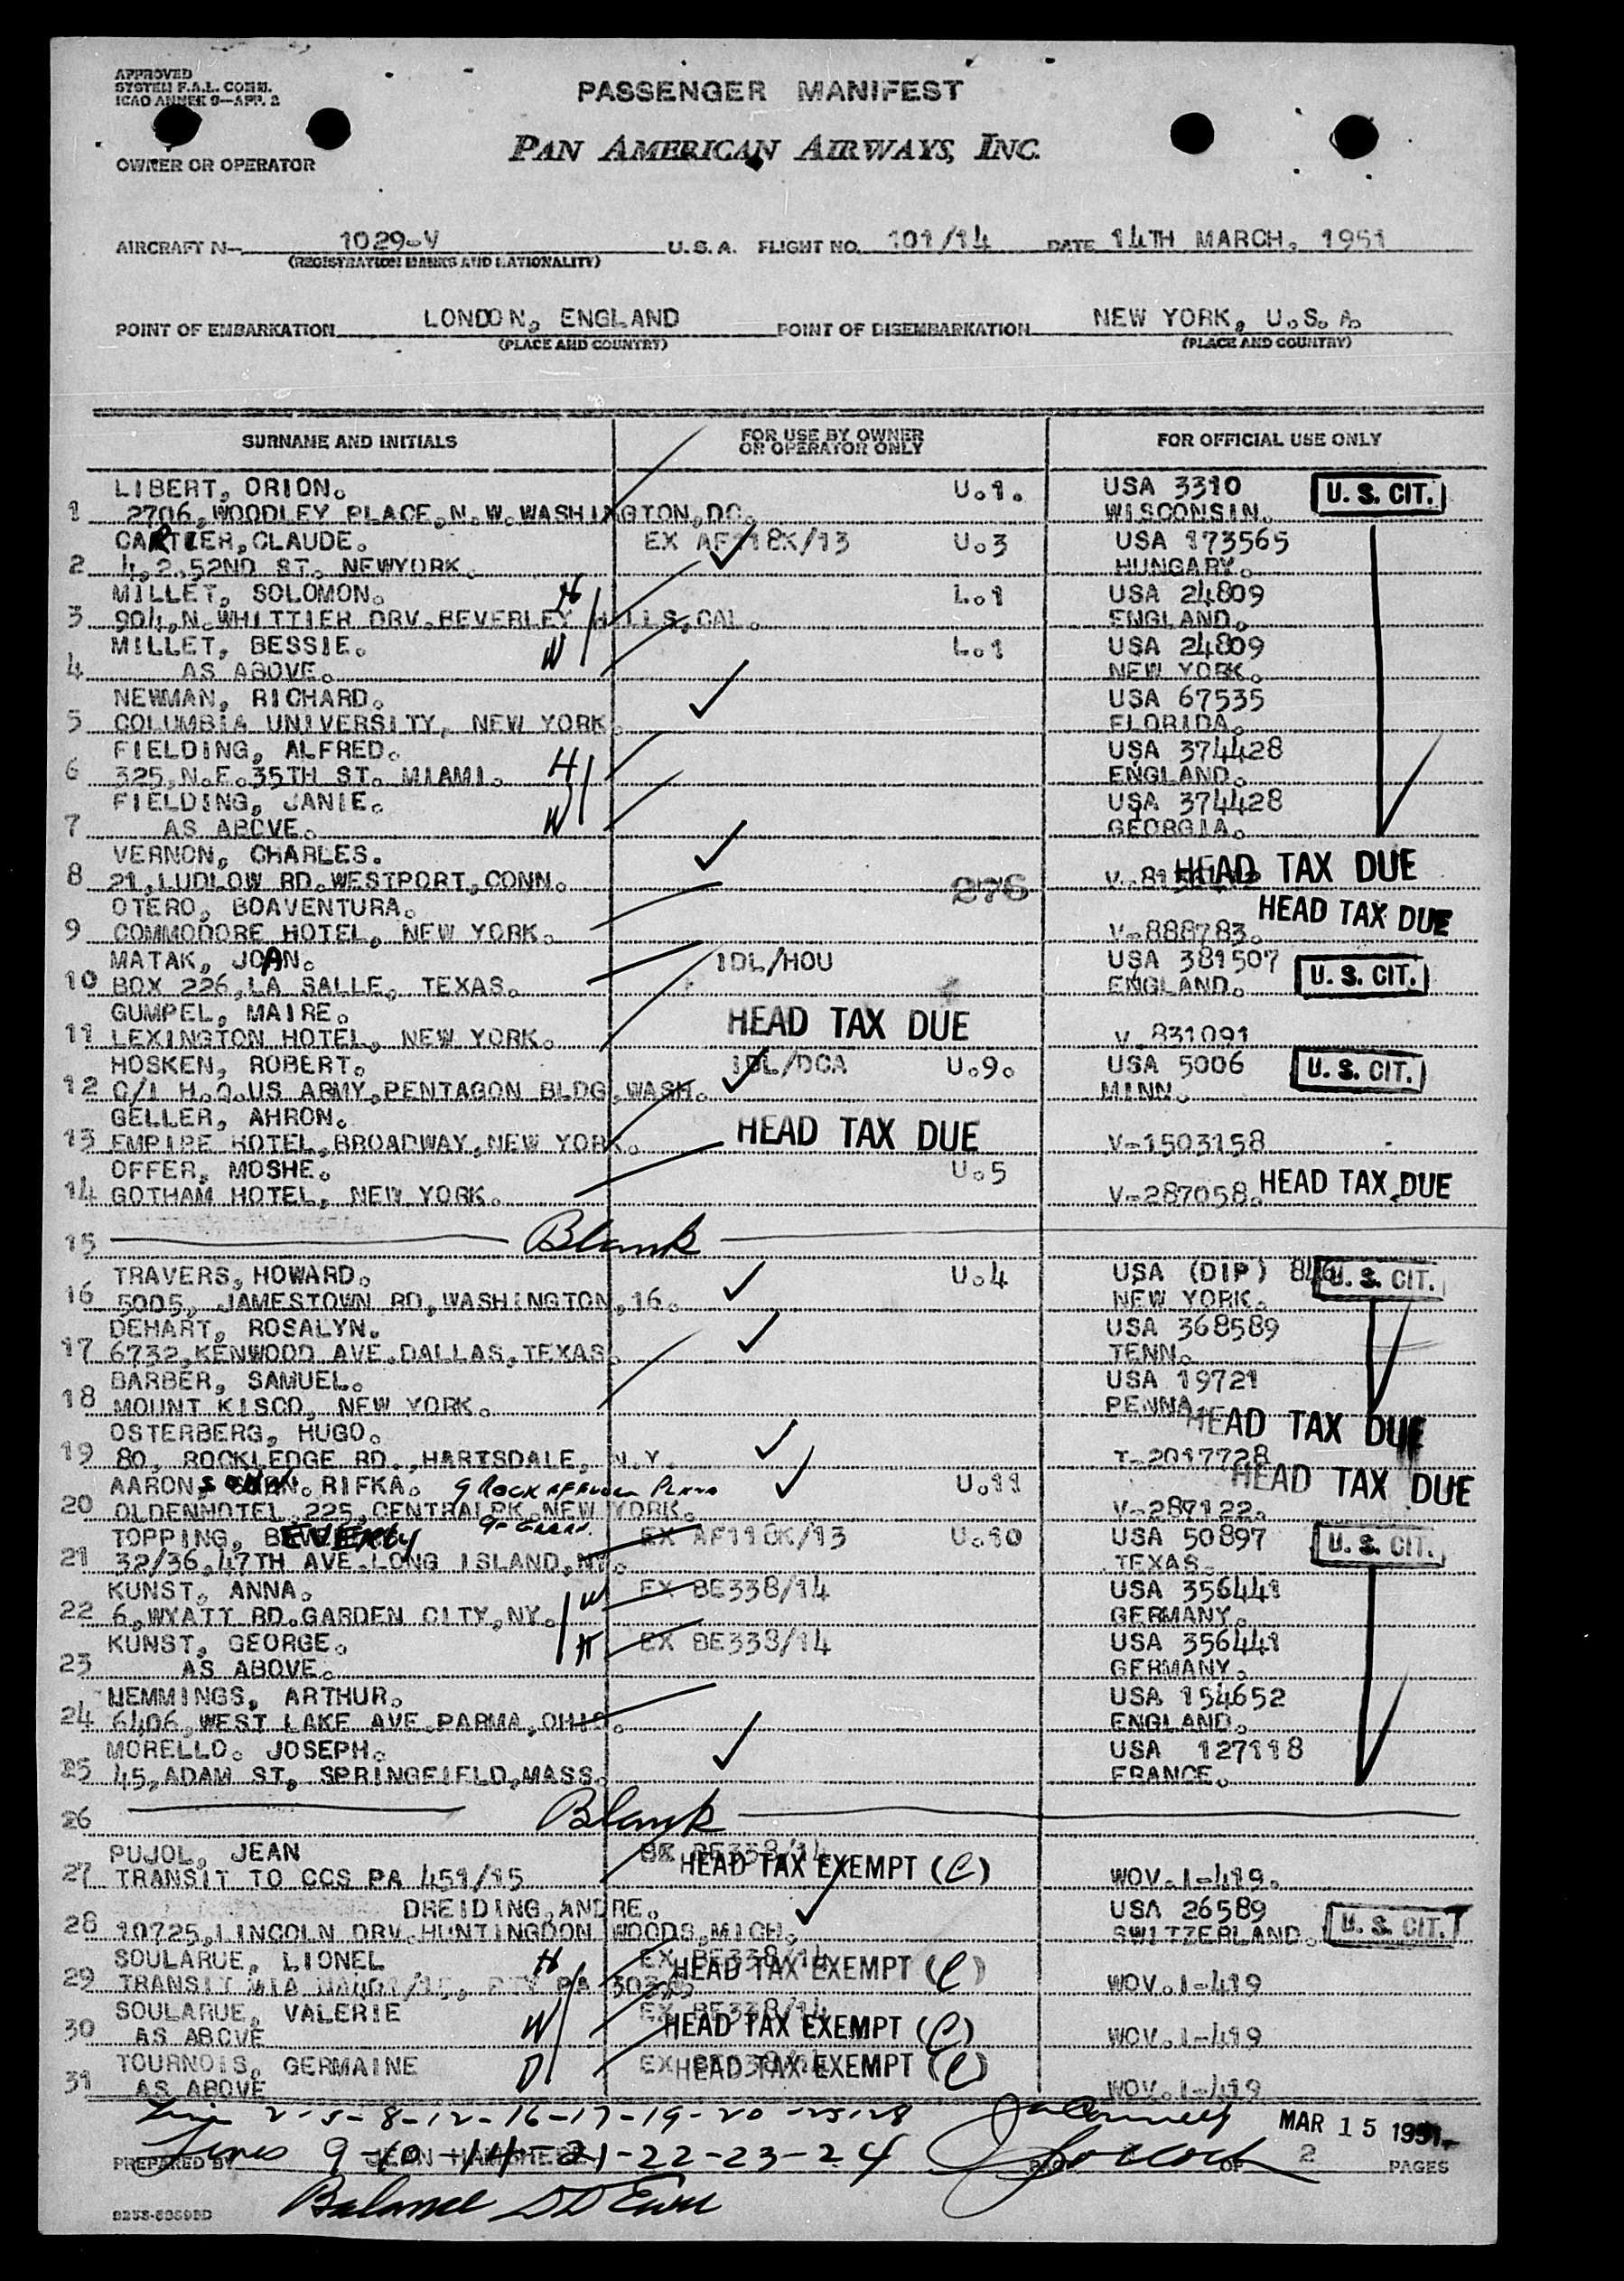 APPROVED
SYSTEM F.A.L. COMM.
ICAO ANNEX 9—APP. 2
PASSENGER MANIFEST
PAN AMERICAN AIRWAYS, INC.
OWNER OR OPERATOR
AIRCRAFT N— 1029-V U.S.A. FLIGHT NO. 101/14 DATE 14TH MARCH, 1951
(REGISTRATION MARKS AND NATIONALITY)
POINT OF EMBARKATION LONDON, ENGLAND POINT OF DISEMBARKATION NEW YORK, U.S.A.
(PLACE AND COUNTRY) (PLACE AND COUNTRY)
SURNAME AND INITIALS FOR USE BY OWNER OR OPERATOR ONLY FOR OFFICIAL USE ONLY
LIBERT, ORION. U.1. USA 3310 U. S. CIT.
1 2706,WOODLEY PLACE,N.W.WASHINGTON,DC. WISCONSIN.
CARTIER,CLAUDE. EX AF118K/13 U.3 USA 173565
2 4,2,52ND ST. NEWYORK. HUNGARY.
MILLET, SOLOMON. H L.1 USA 24809
3 904,N.WHITTIER DRV.BEVERLEY HILLS,CAL. ENGLAND.
MILLET, BESSIE. W L.1 USA 24809
4 AS ABOVE. NEW YORK.
NEWMAN, RICHARD. USA 67535
5 COLUMBIA UNIVERSITY, NEW YORK. FLORIDA.
FIELDING, ALFRED. H USA 374428
6 325,N.E.35TH ST. MIAMI. ENGLAND.
FIELDING, JANIE. W USA 374428
7 AS ABOVE. GEORGIA.
VERNON, CHARLES. HEAD TAX DUE
8 21,LUDLOW RD.WESTPORT,CONN. 276
OTERO, BOAVENTURA. HEAD TAX DUE
9 COMMODORE HOTEL, NEW YORK. V-888783.
MATAK, JOAN. IDL/HOU USA 381507 U. S. CIT.
10 BOX 226,LA SALLE, TEXAS. ENGLAND.
GUMPEL, MAIRE. HEAD TAX DUE
11 LEXINGTON HOTEL, NEW YORK. V.831091
HOSKEN, ROBERT. IDL/DCA U.9. USA 5006 U. S. CIT.
12 C/I H.Q.US ARMY,PENTAGON BLDG,WASH. MINN.
GELLER, AHRON. HEAD TAX DUE
13 EMPIRE HOTEL,BROADWAY,NEW YORK. V-1503158
OFFER, MOSHE. U.5 HEAD TAX DUE
14 GOTHAM HOTEL, NEW YORK. V-287058.
15 Blank
TRAVERS, HOWARD. U.4 USA (DIP) 846 U. S. CIT.
16 5005, JAMESTOWN RD,WASHINGTON,16. NEW YORK.
DEHART, ROSALYN. USA 368589
17 6732,KENWOOD AVE.DALLAS,TEXAS. TENN.
BARBER, SAMUEL. USA 19721
18 MOUNT KISCO, NEW YORK. PENNA.
OSTERBERG, HUGO. HEAD TAX DUE
19 80, ROCKLEDGE RD.,HARTSDALE, N.Y. T-2017728
AARONSOHN. RIFKA. U.11 HEAD TAX DUE
20 OLDENHOTEL,225,CENTRALPK.NEW YORK. V-287122.
TOPPING, BEVERLY EX AF118K/13 U.10 USA 50897 U. S. CIT.
21 32/36,47TH AVE.LONG ISLAND,NY. TEXAS.
KUNST, ANNA. W EX BE338/14 USA 356441
22 6,WYATT RD.GARDEN CITY,NY. GERMANY.
KUNST, GEORGE. H EX BE338/14 USA 356441
23 AS ABOVE. GERMANY.
HEMMINGS, ARTHUR. USA 154652
24 6406,WEST LAKE AVE.PARMA,OHIO. ENGLAND.
MORELLO. JOSEPH. USA 127118
25 45,ADAM ST, SPRINGFIELD,MASS. FRANCE.
26 Blank
PUJOL, JEAN EX BE338/14 HEAD TAX EXEMPT (C)
27 TRANSIT TO CCS PA 451/15 WOV.I-419.
DREIDING,ANDRE. USA 26589 U. S. CIT.
28 10725,LINCOLN DRV.HUNTINGDON WOODS,MICH. SWITZERLAND.
SOULARUE, LIONEL H EX BE338/14 HEAD TAX EXEMPT (C)
29 TRANSIT WOV.I-419
SOULARUE, VALERIE W EX BE338/14 HEAD TAX EXEMPT (C)
30 AS ABOVE WOV.I-419
TOURNOIS, GERMAINE D EX BE338/14 HEAD TAX EXEMPT (C)
31 AS ABOVE WOV.I-419
2-5-8-12-16-17-19-20-25-28 MAR 15 1951
Lines 9-10-14-21-22-23-24
PREPARED BY JEAN PAGE OF 2 PAGES
Balance